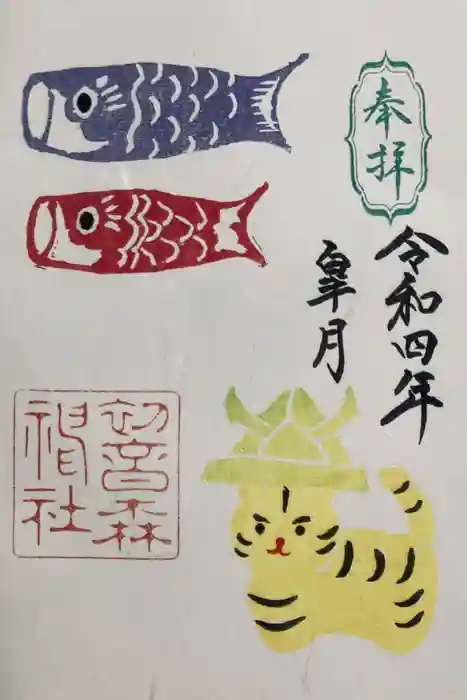 奉拝
令和四年
皐月
初音森
神社